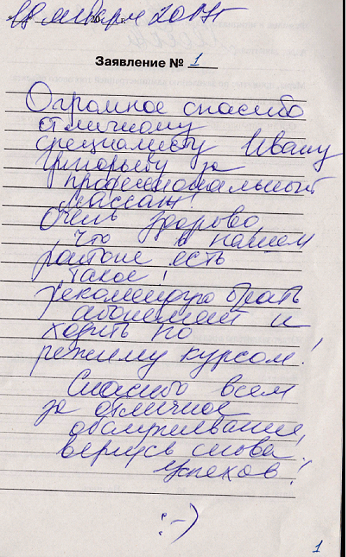 января 2017г
Заявление № 1
Огромное спасибо
отличному
специалисту Ивану
Григорьеву за
професиональный
массаж!
Очень здорово,
что в нашем
районе есть
такое!
Рекомендую брать
абонемент и
ходить по
режиму курсом!
Спасибо всем
за отличное
обслуживание,
вернусь снова.
Успехов!
:-)
1